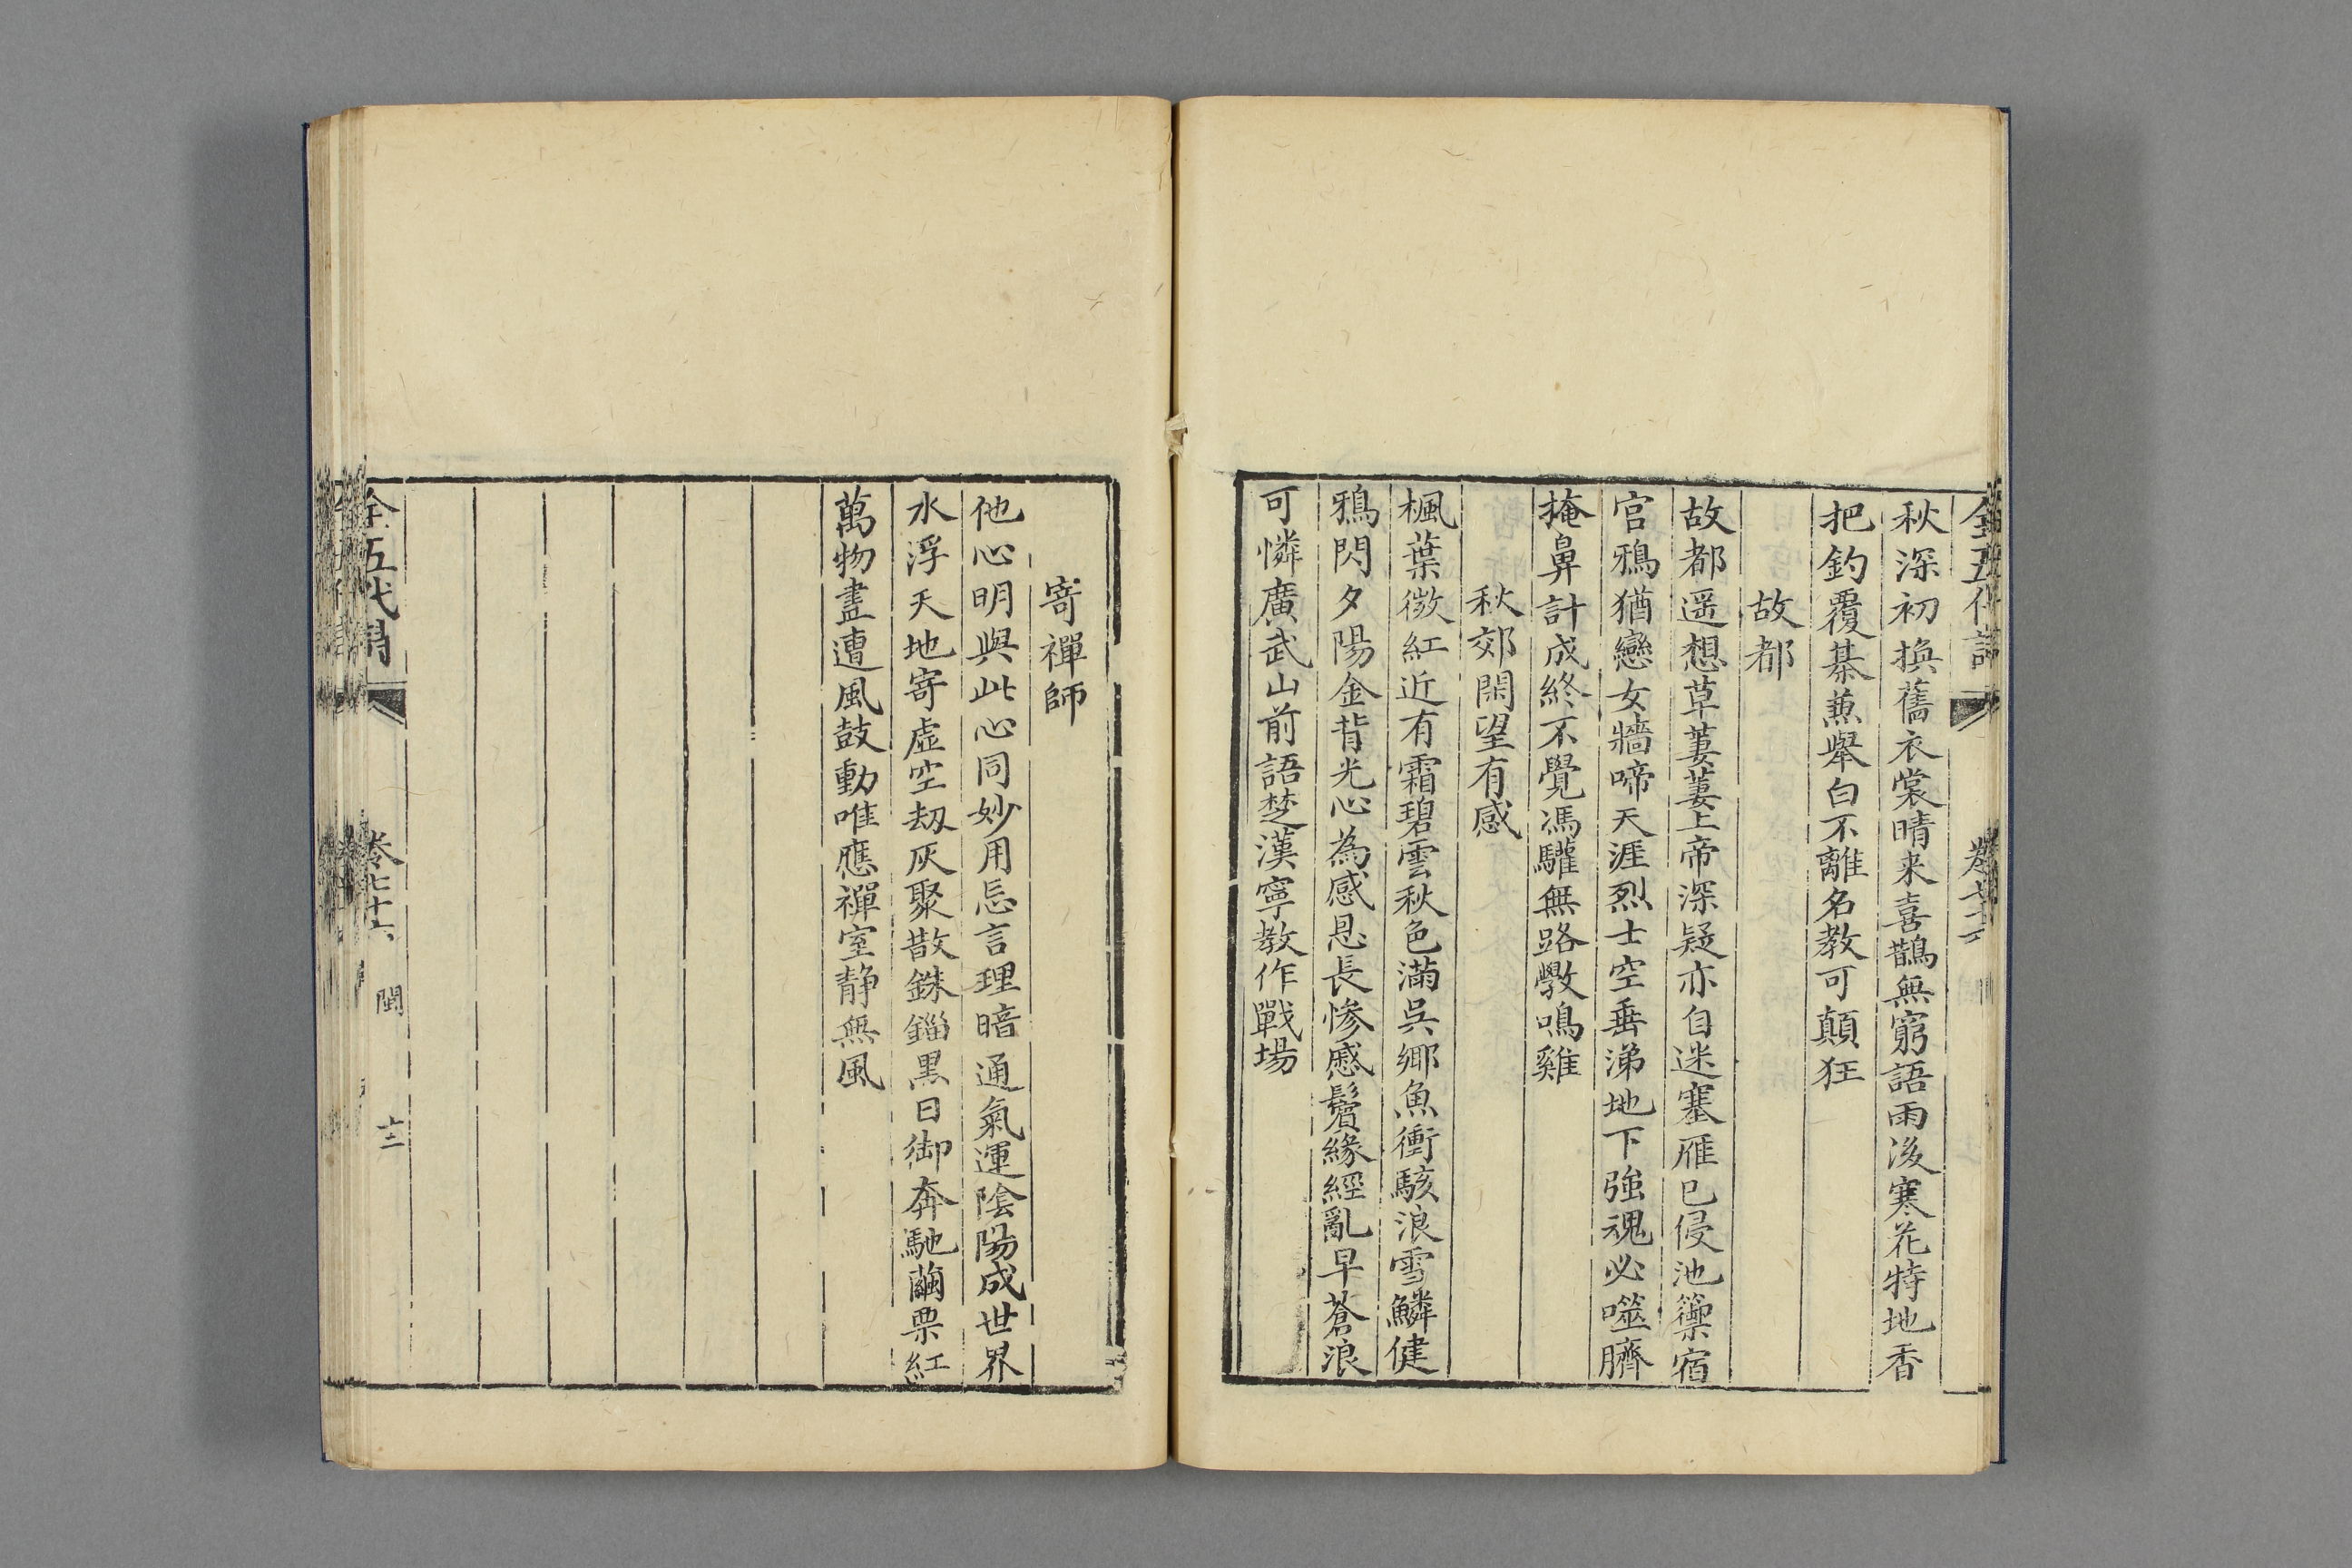 秋深初換舊衣裳晴来喜鵲無窮語雨後寒花特地香
把釣覆棊兼舉白不離名教可顛狂
故都
故都遥想草萋萋上帝深疑亦自迷塞雁已侵池籞宿
官鴉猶戀女牆啼天涯烈士空垂涕地下強魂必噬臍
掩鼻計成終不覺馮驩無路斆鳴雞
秋郊閑望有感
楓葉微紅近有霜碧雲秋色滿吳鄉魚衝駭浪雪鱗健
鴉閃夕陽金背光心為感恩長慘慼鬢緣經亂早蒼浪
可憐廣武山前語楚漢寧教作戰場
寄禪師
他心明與此心同妙用忘言理暗通氣運陰陽成世界
水浮天地寄虛空刼灰聚散銖錙黑日御奔馳繭栗紅
萬物盡遭風鼓動唯應禪室静無風
全五代詩
卷七十六
閩
十三